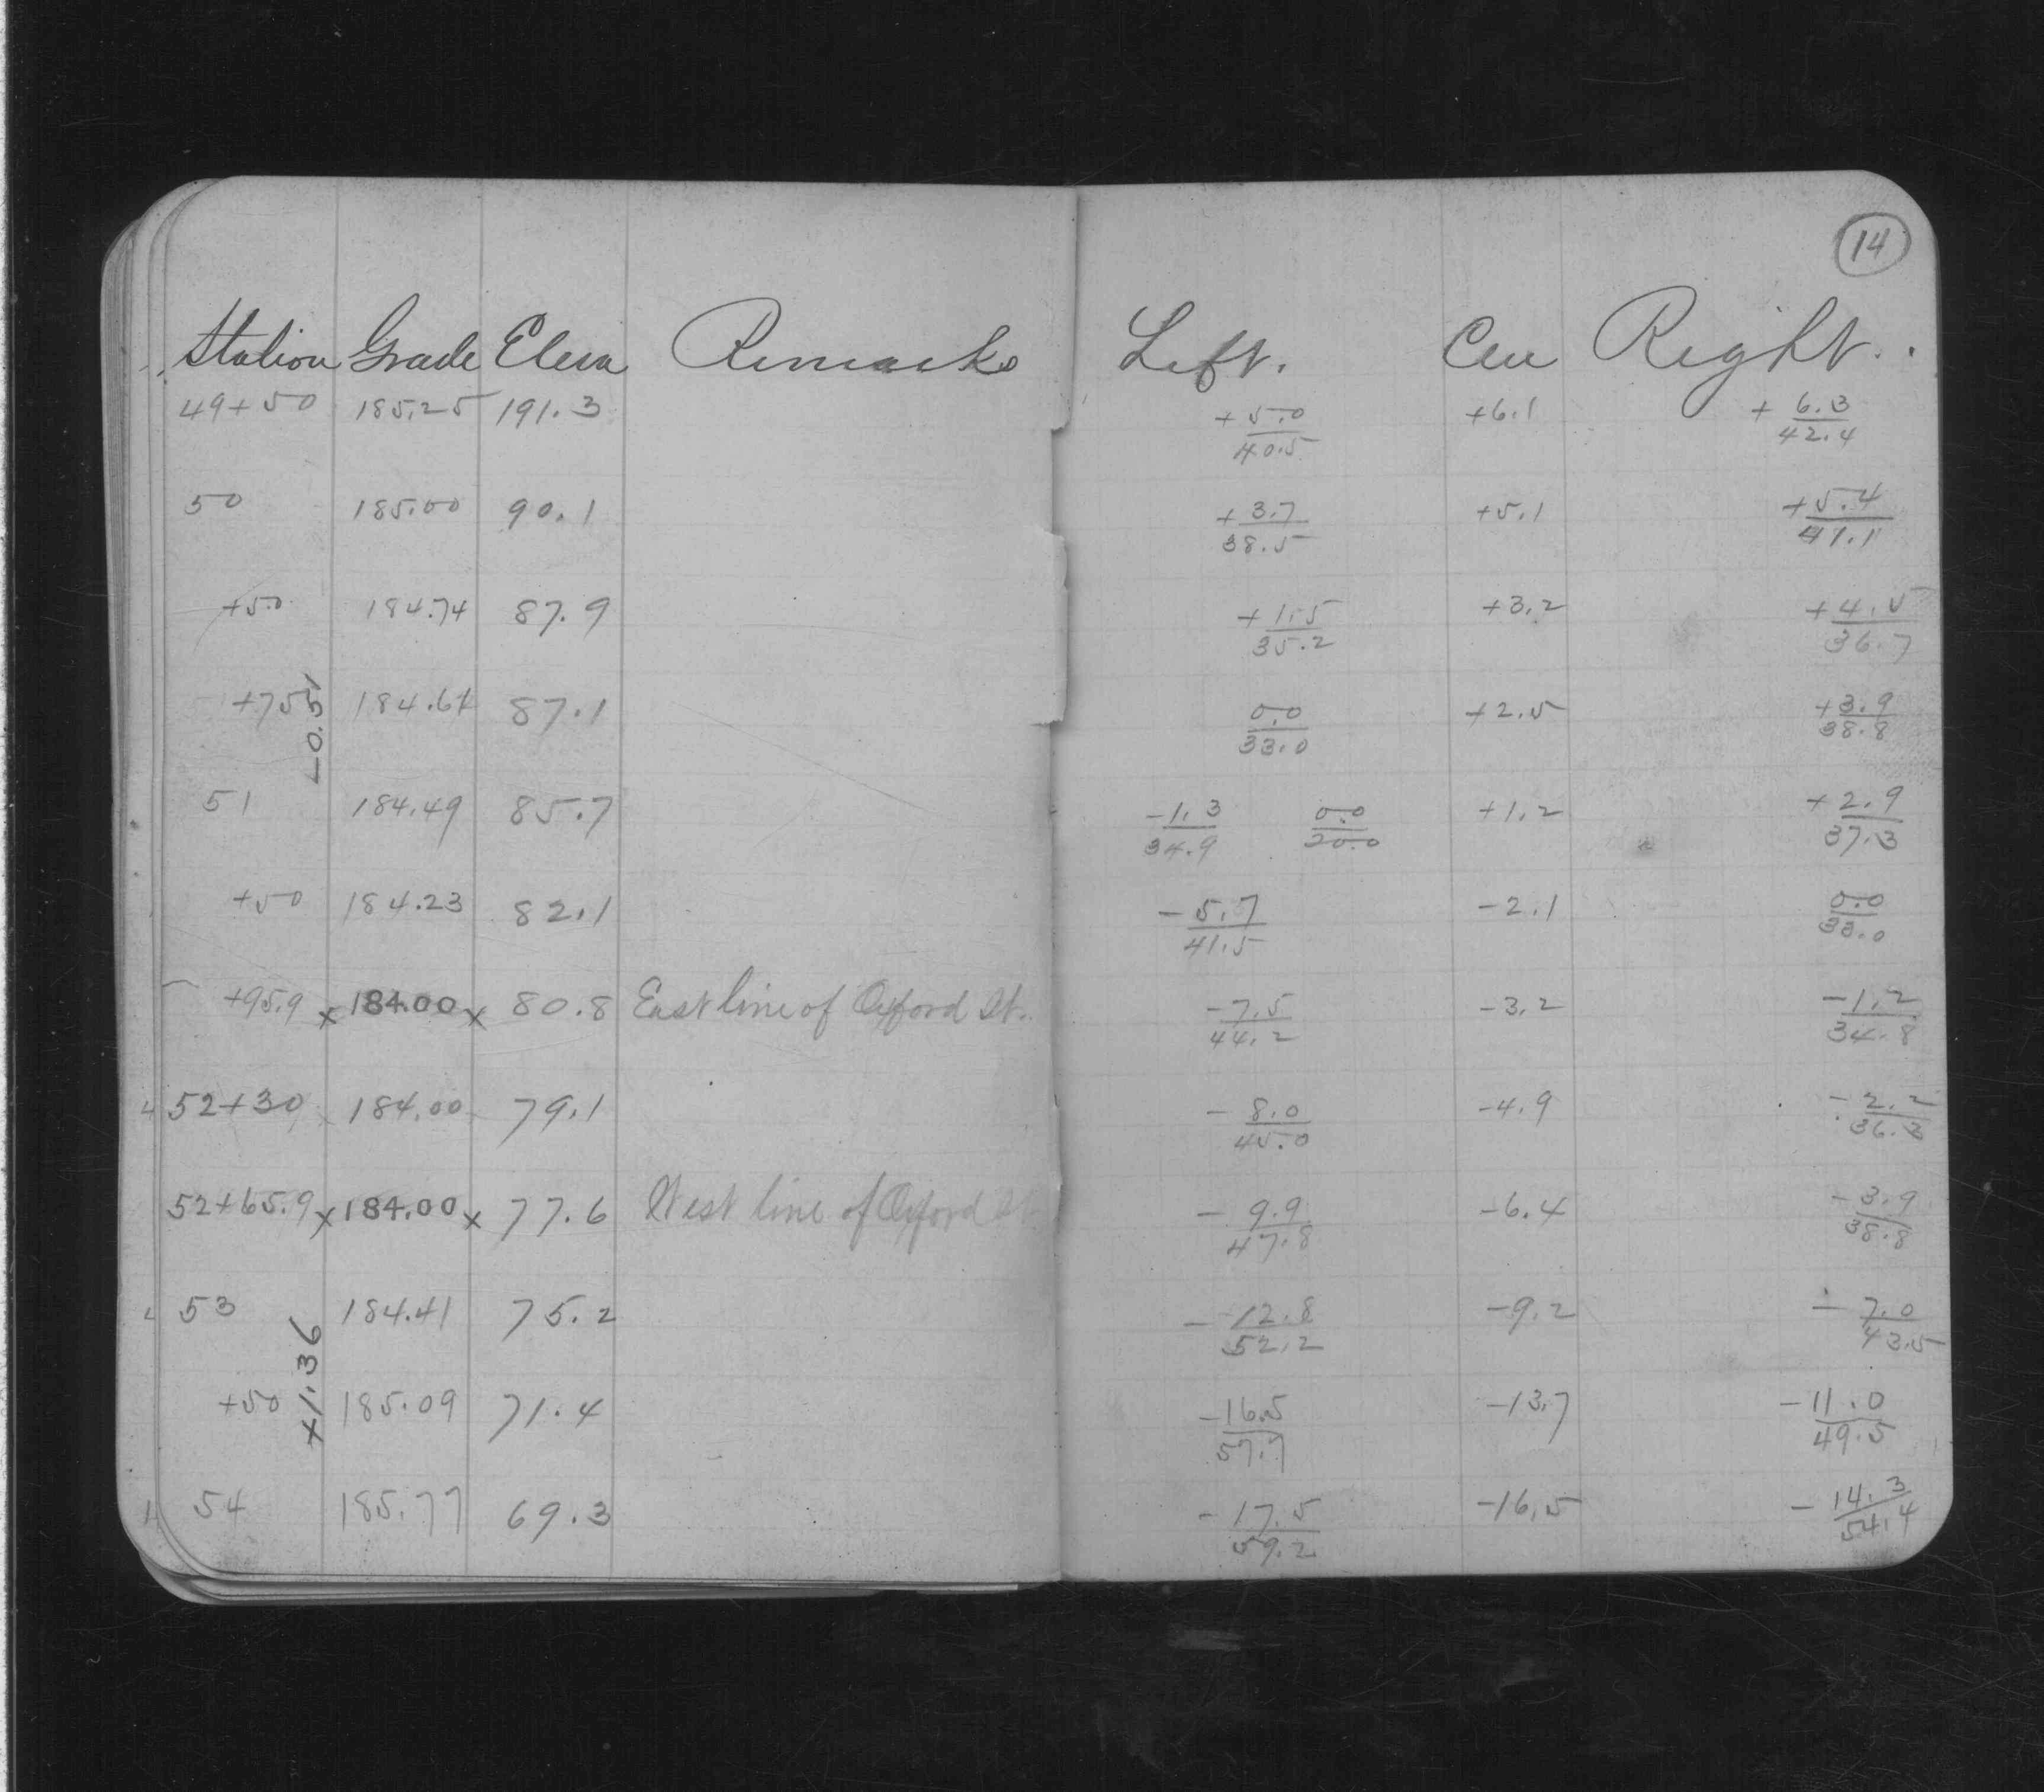 14
Station Grade Elev Remarks Left. Cen Right.
49+50 185.25 191.3 +5.0/40.5 +6.1 +6.3/42.4
50 185.00 90.1 +3.7/38.5 +5.1 +5.4/41.1
+50 184.74 87.9 +1.5/35.2 +3.2 +4.5/36.7
+75 184.61 87.1 0.0/33.0 +2.5 +3.9/38.8
-0.51
51 184.49 85.7 -1.3/34.9 0.0/20.0 +1.2 +2.9/37.3
+50 184.23 82.1 -5.7/41.5 -2.1 0.0/33.0
+95.9 x 184.00 x 80.8 East line of Oxford St. -7.5/44.2 -3.2 -1.2/34.8
52+30 184.00 79.1 -8.0/45.0 -4.9 -2.2/36.3
52+65.9 x 184.00 x 77.6 West line of Oxford St -9.9/47.8 -6.4 -3.9/38.8
53 184.41 75.2 -12.8/52.2 -9.2 -7.0/43.5
+1.36
+50 185.09 71.4 -16.5/57.7 -13.7 -11.0/49.5
54 185.77 69.3 -17.5/59.2 -16.5 -14.3/54.4